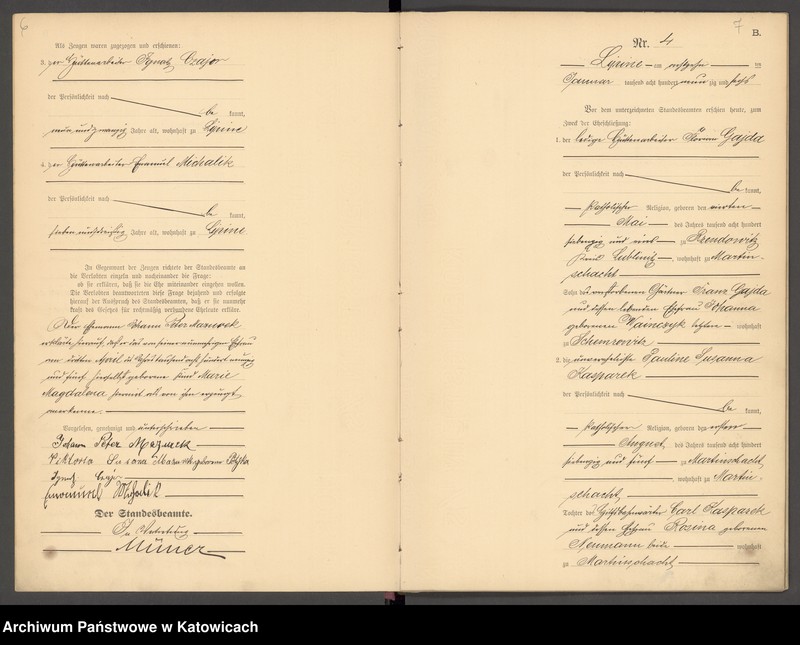 6
Als Zeugen waren zugezogen und erschienen:
3. der Hüttenarbeiter Ignatz Czajor
der Persönlichkeit nach
be kannt,
neunundzwanzig Jahre alt, wohnhaft zu Lipine
4. der Hüttenarbeiter Emanuel Michalik
der Persönlichkeit nach
be kannt,
siebenunddreißig Jahre alt, wohnhaft zu Lipine
In Gegenwart der Zeugen richtete der Standesbeamte an
die Verlobten einzeln und nacheinander die Frage:
ob sie erklären, daß sie die Ehe miteinander eingehen wollen.
Die Verlobten beantworteten diese Frage bejahend und erfolgte
hierauf der Ausspruch des Standesbeamten, daß er sie nunmehr
kraft des Gesetzes für rechtmäßig verbundene Eheleute erkläre.
Der Ehemann Johann Peter Mazurek
erklärte hierauf, daß er das von seiner nunmehrigen Ehefrau
am dritten April des Jahres tausend acht hundert neunzig
und fünf hierselbst geborene Kind Marie
Magdalena
anerkenne.
Vorgelesen, genehmigt und unterschrieben
Johann Peter Mazurek
Viktoria Mazurek geborene
Ignatz Czajor
Emanuel Michalik
Der Standesbeamte.
In Vertretung
7
B.
Nr. 4
Lipine am achtzehn ten
Januar tausend acht hundert neun zig und sechs
Vor dem unterzeichneten Standesbeamten erschien heute, zum
Zweck der Eheschließung:
1. der ledige Hüttenarbeiter Florian Gajda
der Persönlichkeit nach
be kannt,
katholischer Religion, geboren den vierten
Mai des Jahres tausend acht hundert
siebenzig und eins zu
Kreis Lublinitz, wohnhaft zu Martin-
schacht
Sohn des verstorbenen Gärtner Franz Gajda
und dessen lebenden Ehefrau Johanna
geborenen letztere wohnhaft
zu
2. die unverehelichte Pauline Susanna
Kasparek
der Persönlichkeit nach
be kannt,
katholischer Religion, geboren den ersten
August des Jahres tausend acht hundert
siebenzig und fünf zu Martinschacht
, wohnhaft zu Martin-
schacht
Tochter des Carl Kasparek
und dessen Ehefrau Rosina geborenen
Neumann beide wohnhaft
zu Martinschacht
Archiwum Państwowe w Katowicach